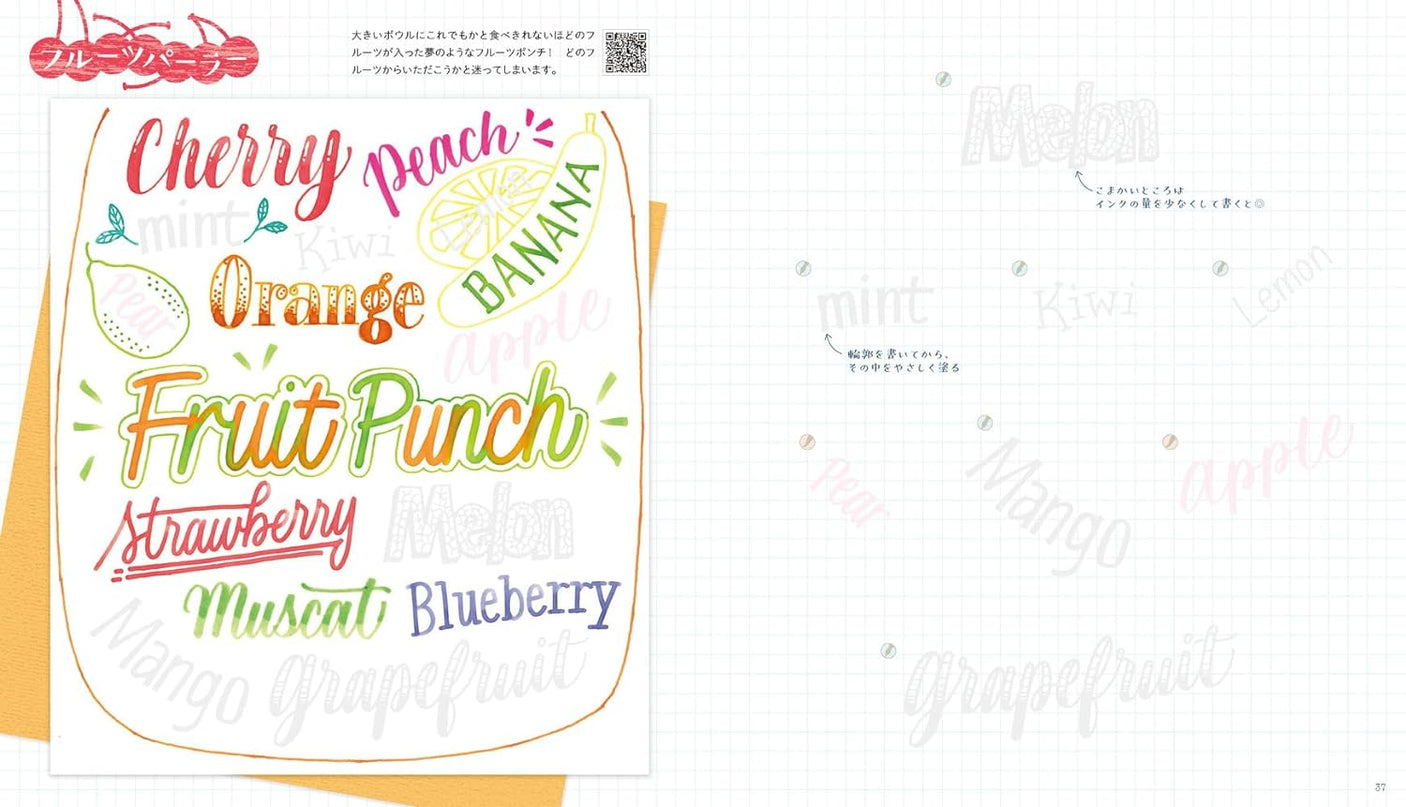 フルーツパーラー
大きいボウルにこれでもかと食べきれないほどのフ
ルーツが入った夢のようなフルーツポンチ! どのフ
ルーツからいただこうかと迷ってしまいます。
Cherry
Peach
mint
Kiwi
Lemon
BANANA
Pear
Orange
apple
Fruit Punch
Strawberry
Melon
Muscat
Blueberry
Mango
grapefruit
Melon
こまかいところは
インクの量を少なくして書くと◎
mint
Kiwi
Lemon
輪郭を書いてから、
その中をやさしく塗る
Pear
Mango
apple
grapefruit
37